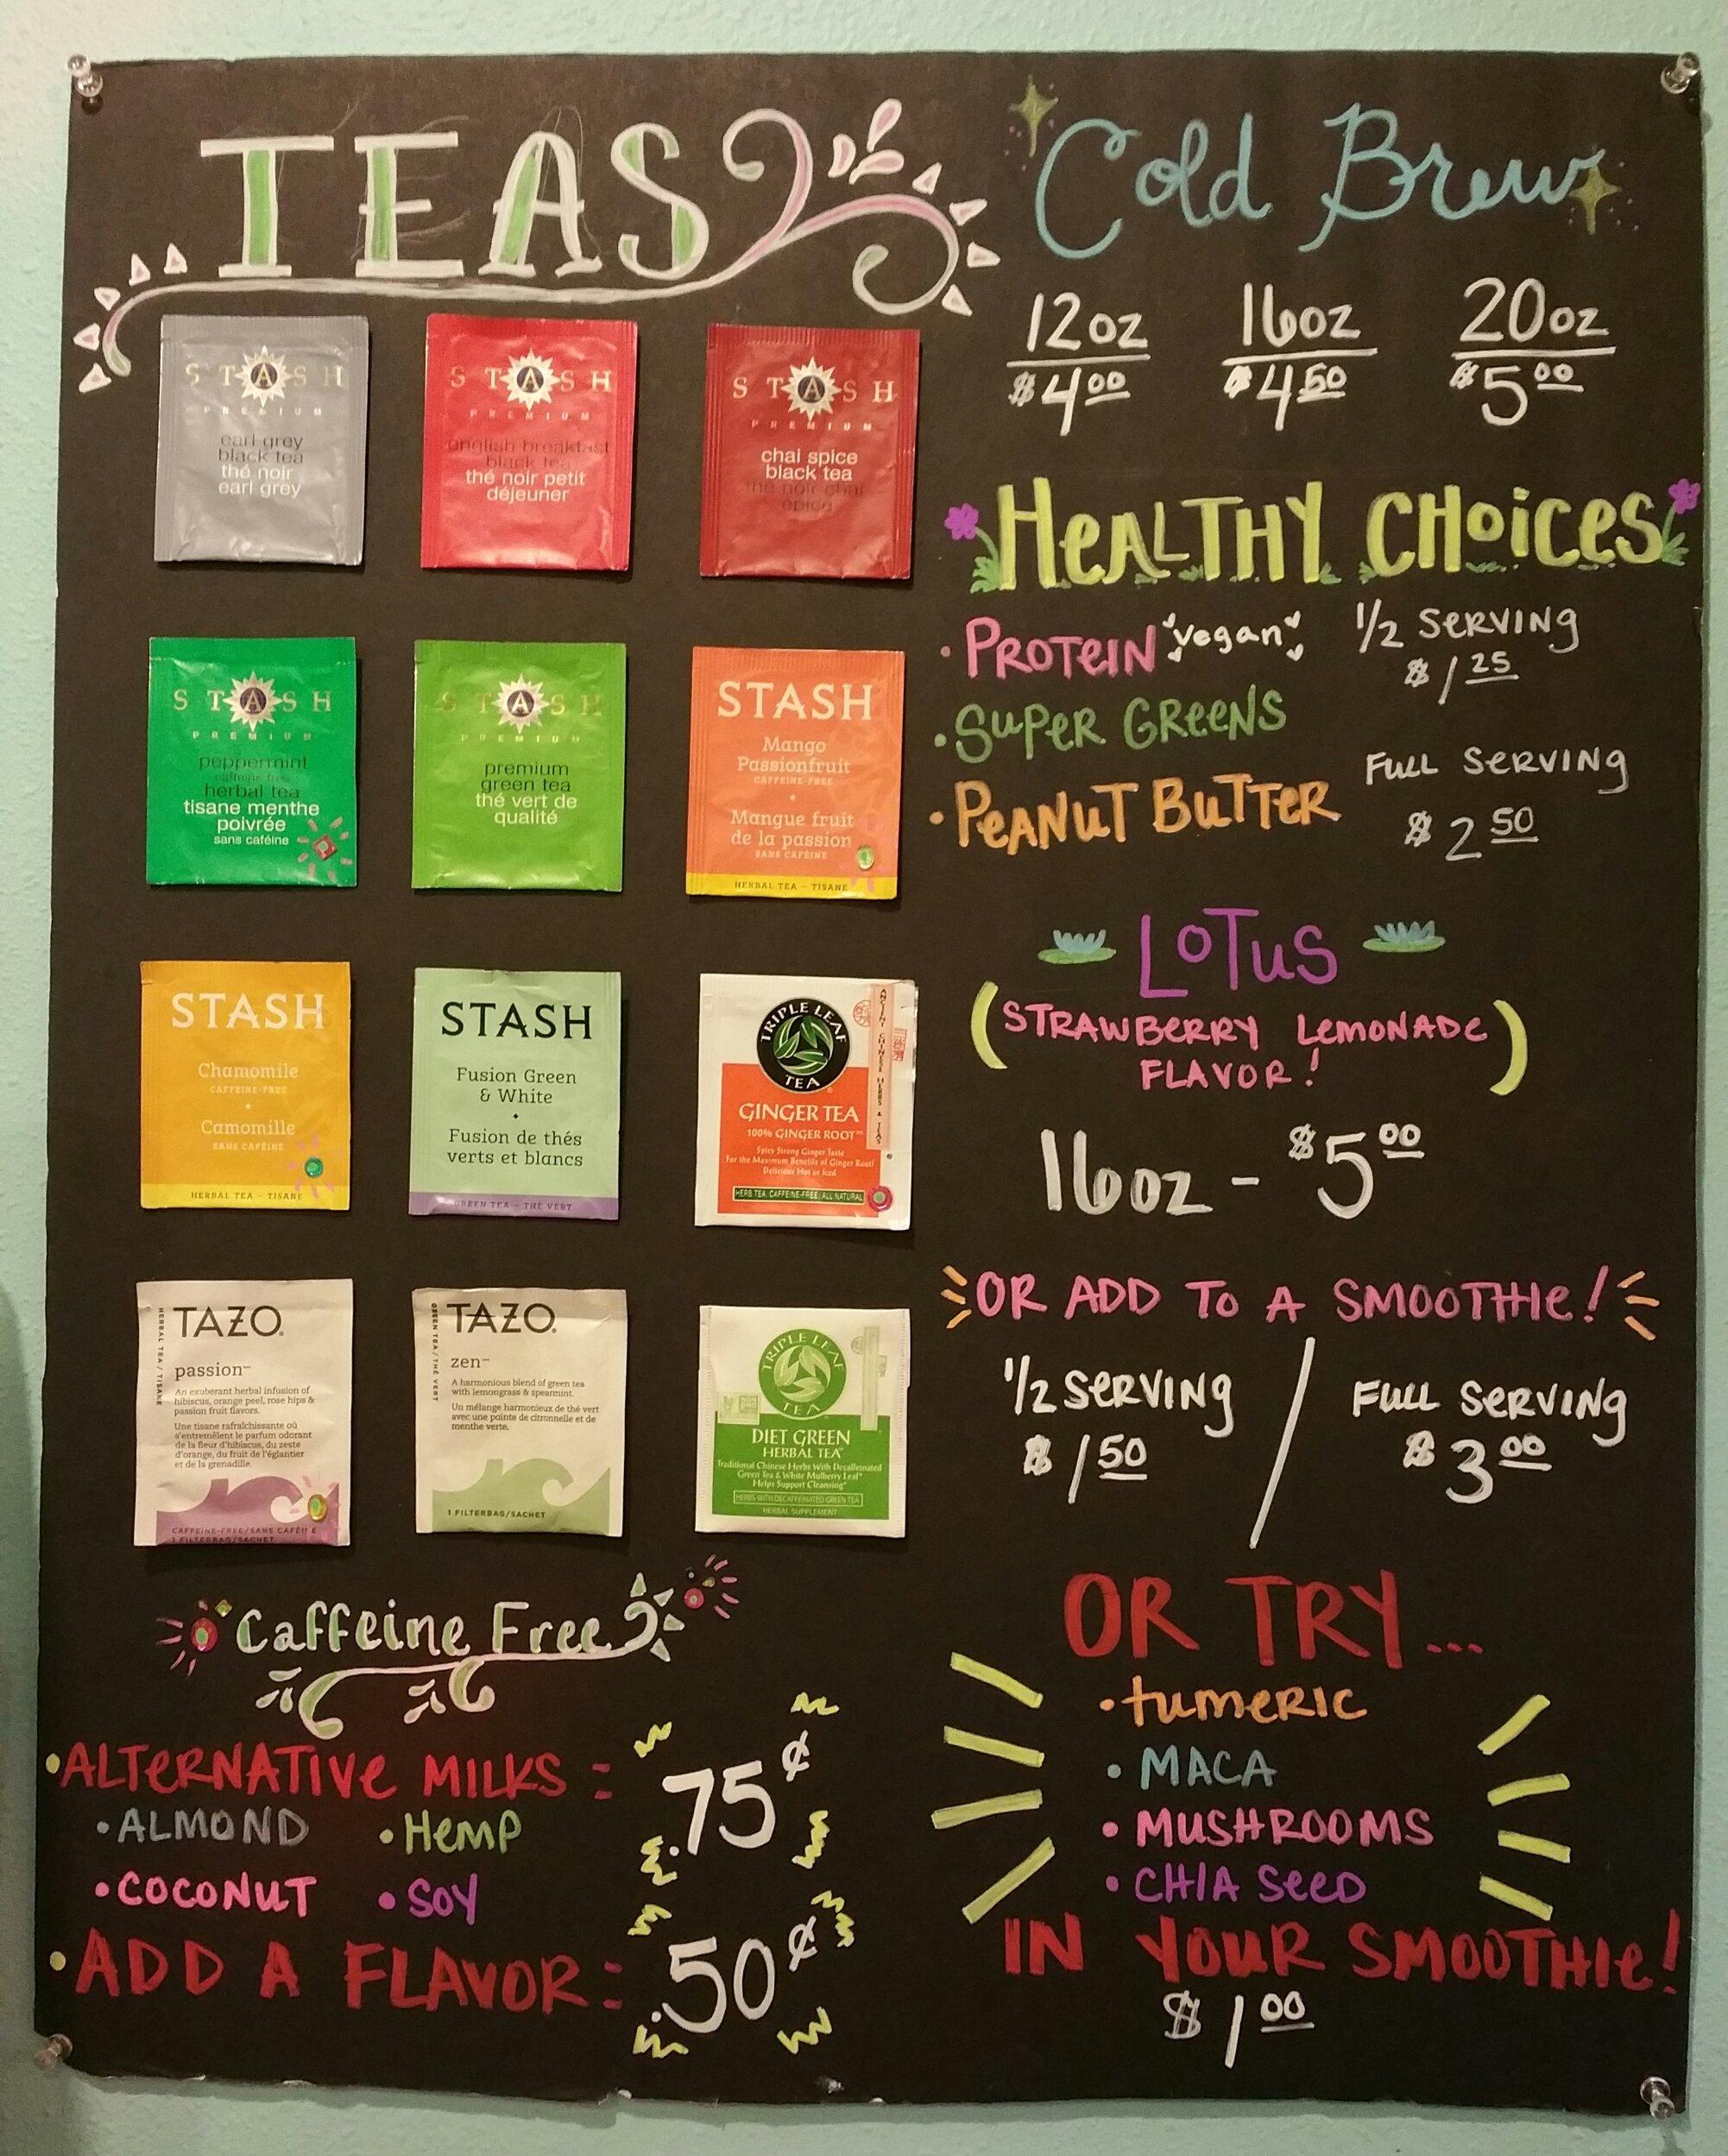 TEAS
STASH
PREMIUM
earl grey
black tea
thé noir
earl grey
STASH
PREMIUM
english breakfast
black tea
thé noir petit
déjeuner
STASH
PREMIUM
chai spice
black tea
thé noir chai
épicé
STASH
PREMIUM
peppermint
caffeine free
herbal tea
tisane menthe
poivrée
sans caféine
STASH
PREMIUM
premium
green tea
thé vert de
qualité
STASH
Mango
Passionfruit
CAFFEINE-FREE
Mangue fruit
de la passion
SANS CAFÉINE
HERBAL TEA - TISANE
STASH
Chamomile
CAFFEINE-FREE
Camomille
SANS CAFÉINE
HERBAL TEA - TISANE
STASH
Fusion Green
& White
Fusion de thés
verts et blancs
GREEN TEA - THÉ VERT
TRIPLE LEAF
TEA
ANCIENT CHINESE HERBS & TEAS
GINGER TEA
100% GINGER ROOT™
Spicy Strong Ginger Taste
For the Maximum Benefits of Ginger Root!
Delicious Hot or Iced
HERB TEA. CAFFEINE-FREE. ALL NATURAL
TAZO®
HERBAL TEA / TISANE
passion™
An exuberant herbal infusion of
hibiscus, orange peel, rose hips &
passion fruit flavors.
Une tisane rafraîchissante où
s'entremêlent le parfum odorant
de la fleur d'hibiscus, du zeste
d'orange, du fruit de l'églantier
et de la grenadille.
CAFFEINE-FREE/SANS CAFÉINE
1 FILTERBAG/SACHET
TAZO®
GREEN TEA / THÉ VERT
zen™
A harmonious blend of green tea
with lemongrass & spearmint.
Un mélange harmonieux de thé vert
avec une pointe de citronnelle et de
menthe verte.
1 FILTERBAG/SACHET
TRIPLE LEAF
TEA
DIET GREEN
HERBAL TEA
Traditional Chinese Herbs With Decaffeinated
Green Tea & White Mulberry Leaf*
Helps Support Cleansing*
HERBS WITH DECAFFEINATED GREEN TEA
HERBAL SUPPLEMENT
Caffeine Free
•ALTERNATIVE MILKS = .75¢
•ALMOND •HEMP
•COCONUT •SOY
•ADD A FLAVOR= .50¢
Cold Brew
12oz 16oz 20oz
$4.00 $4.50 $5.00
HEALTHY CHOICES
•PROTEIN vegan 1/2 SERVING
$1.25
•SUPER GREENS
FULL SERVING
•PEANUT BUTTER $2.50
LOTUS
(STRAWBERRY LEMONADE
FLAVOR!)
16oz - $5.00
OR ADD TO A SMOOTHIE!
1/2 SERVING / FULL SERVING
$1.50 $3.00
OR TRY...
•TUMERIC
•MACA
•MUSHROOMS
•CHIA SEED
IN YOUR SMOOTHIE!
$1.00